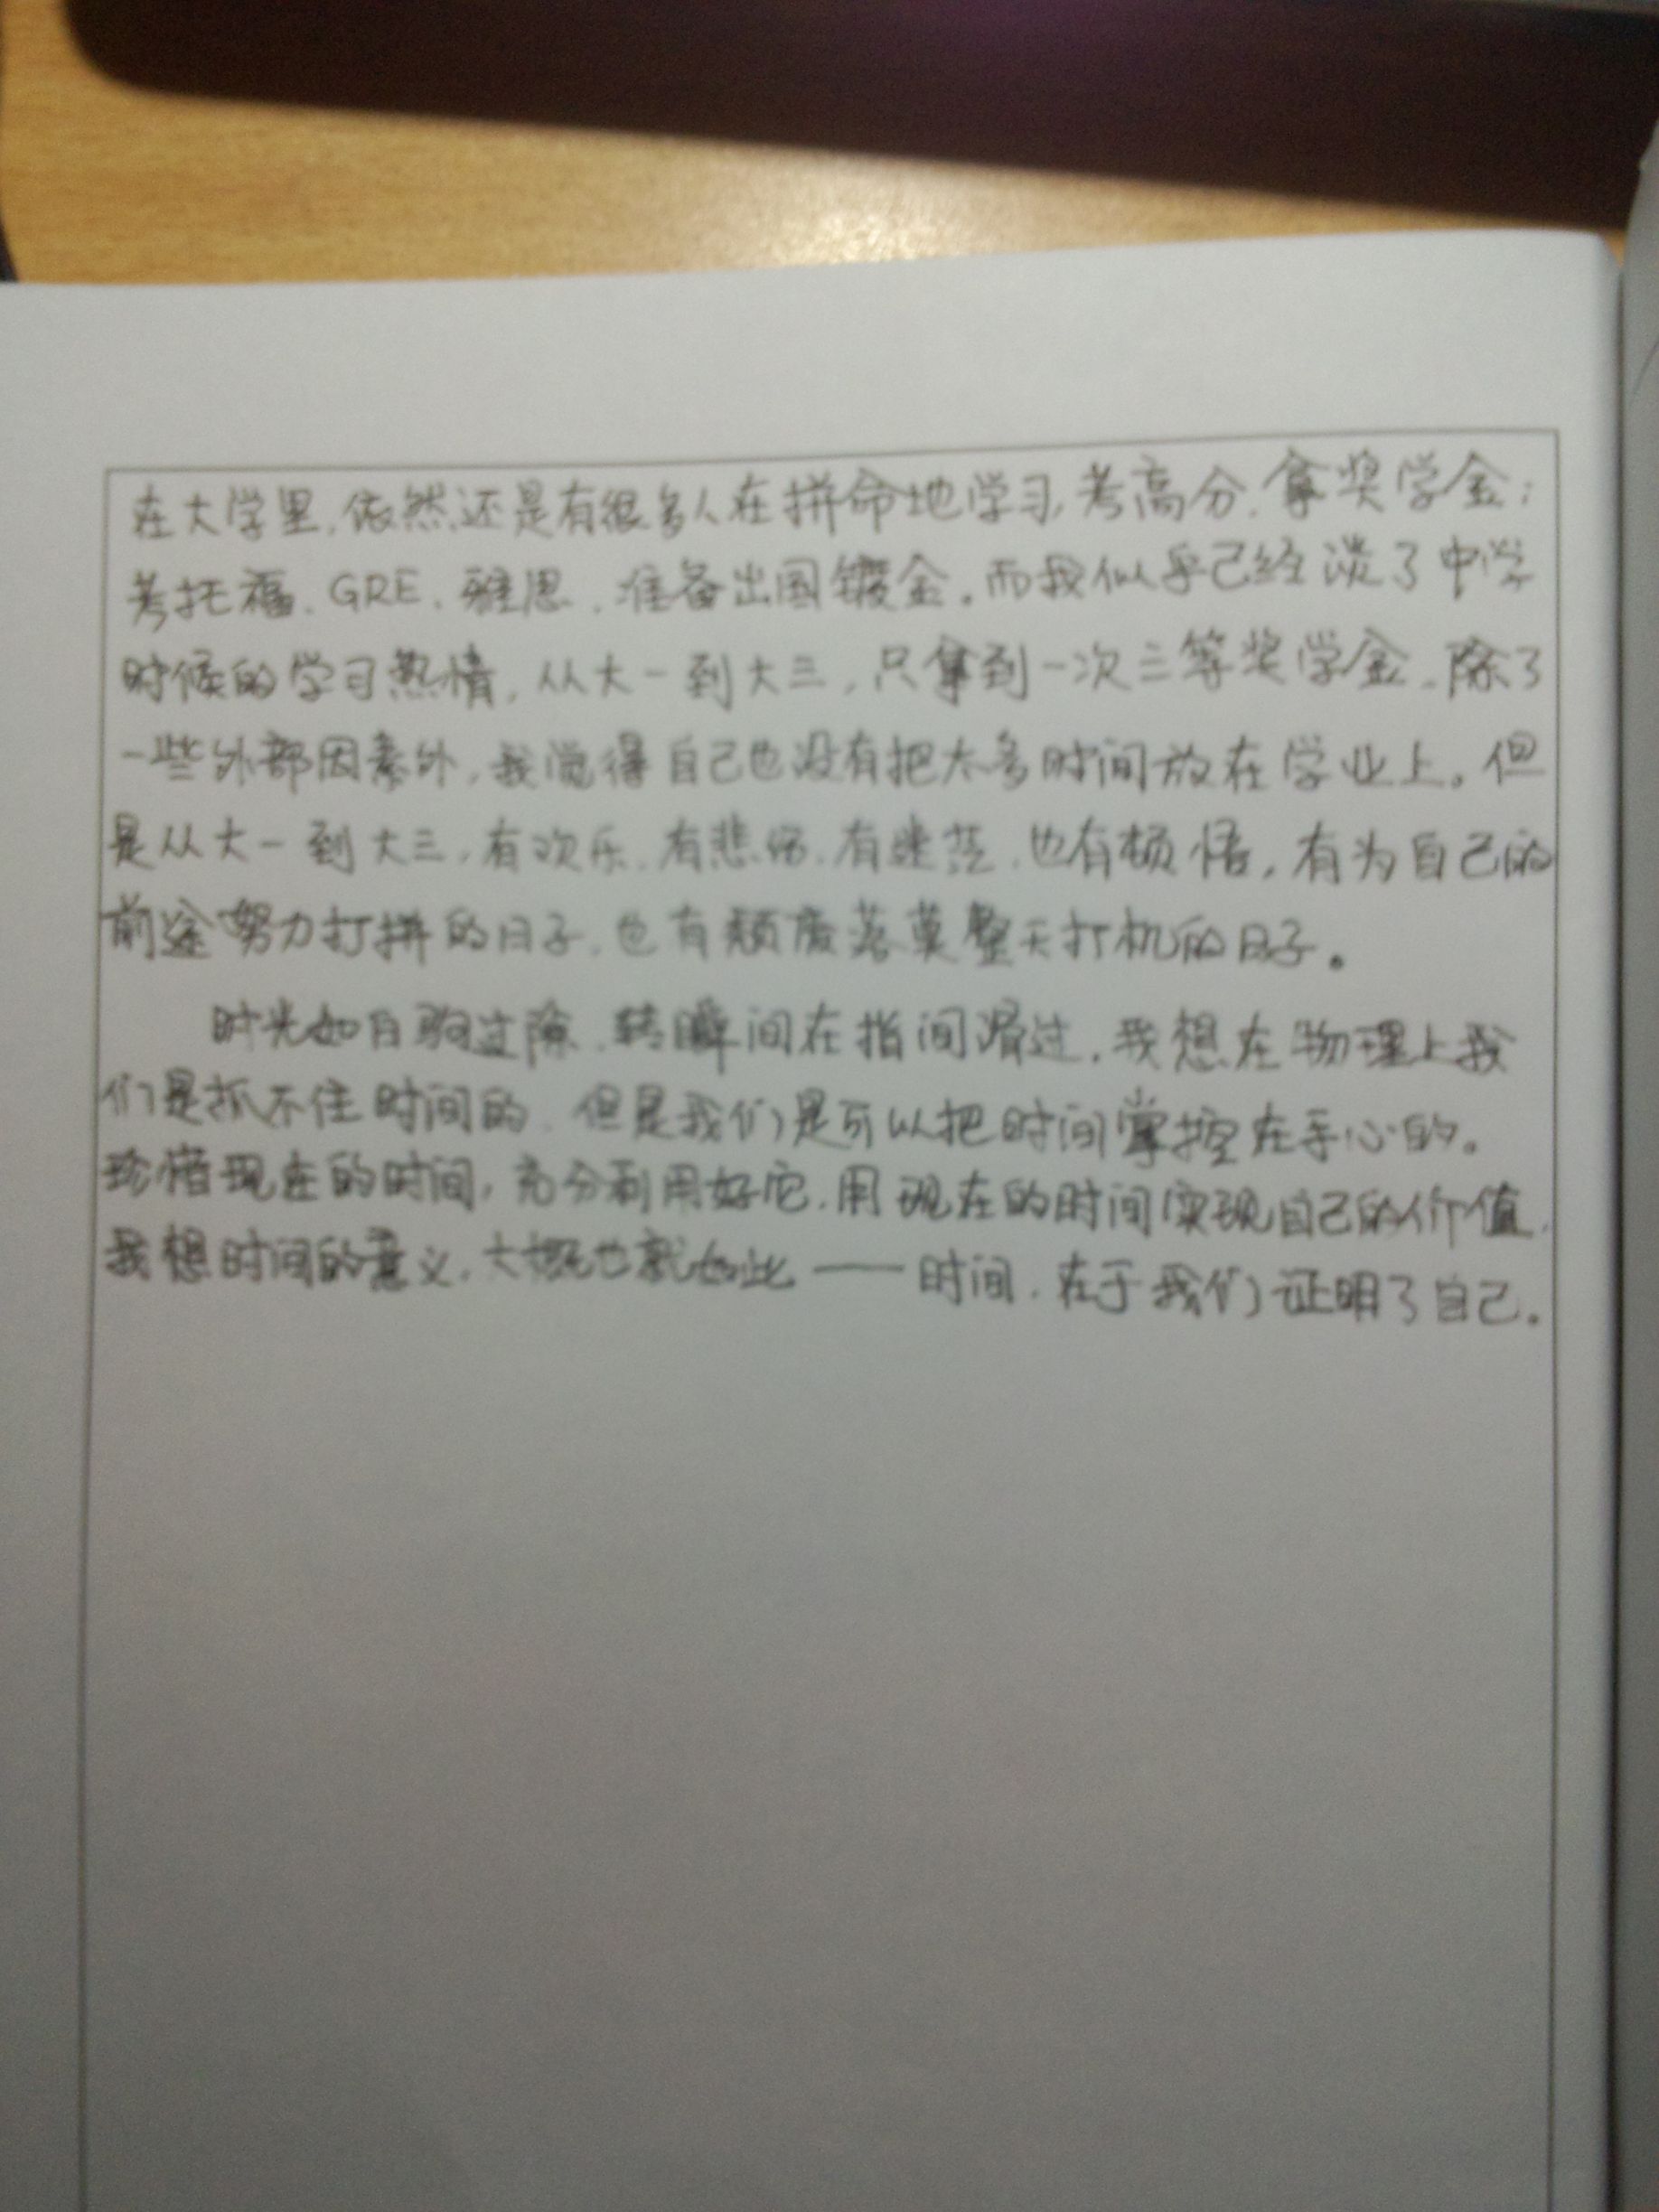 在大学里,依然还是有很多人在拼命地学习,考高分,拿奖学金;
考托福、GRE、雅思,准备出国镀金。而我似乎已经淡了中学
时候的学习热情,从大一到大三,只拿到一次三等奖学金,除了
一些外部因素外,我觉得自己也没有把太多时间放在学业上。但
是从大一到大三,有欢乐,有悲伤,有迷茫,也有顿悟,有为自己的
前途努力打拼的日子,也有颓废落莫整天打机的日子。
时光如白驹过隙,转瞬间在指间滑过,我想在物理上我
们是抓不住时间的,但是我们是可以把时间掌控在手心的。
珍惜现在的时间,充分利用好它,用现在的时间实现自己的价值,
我想时间的意义,大概也就如此——时间,在于我们证明了自己。